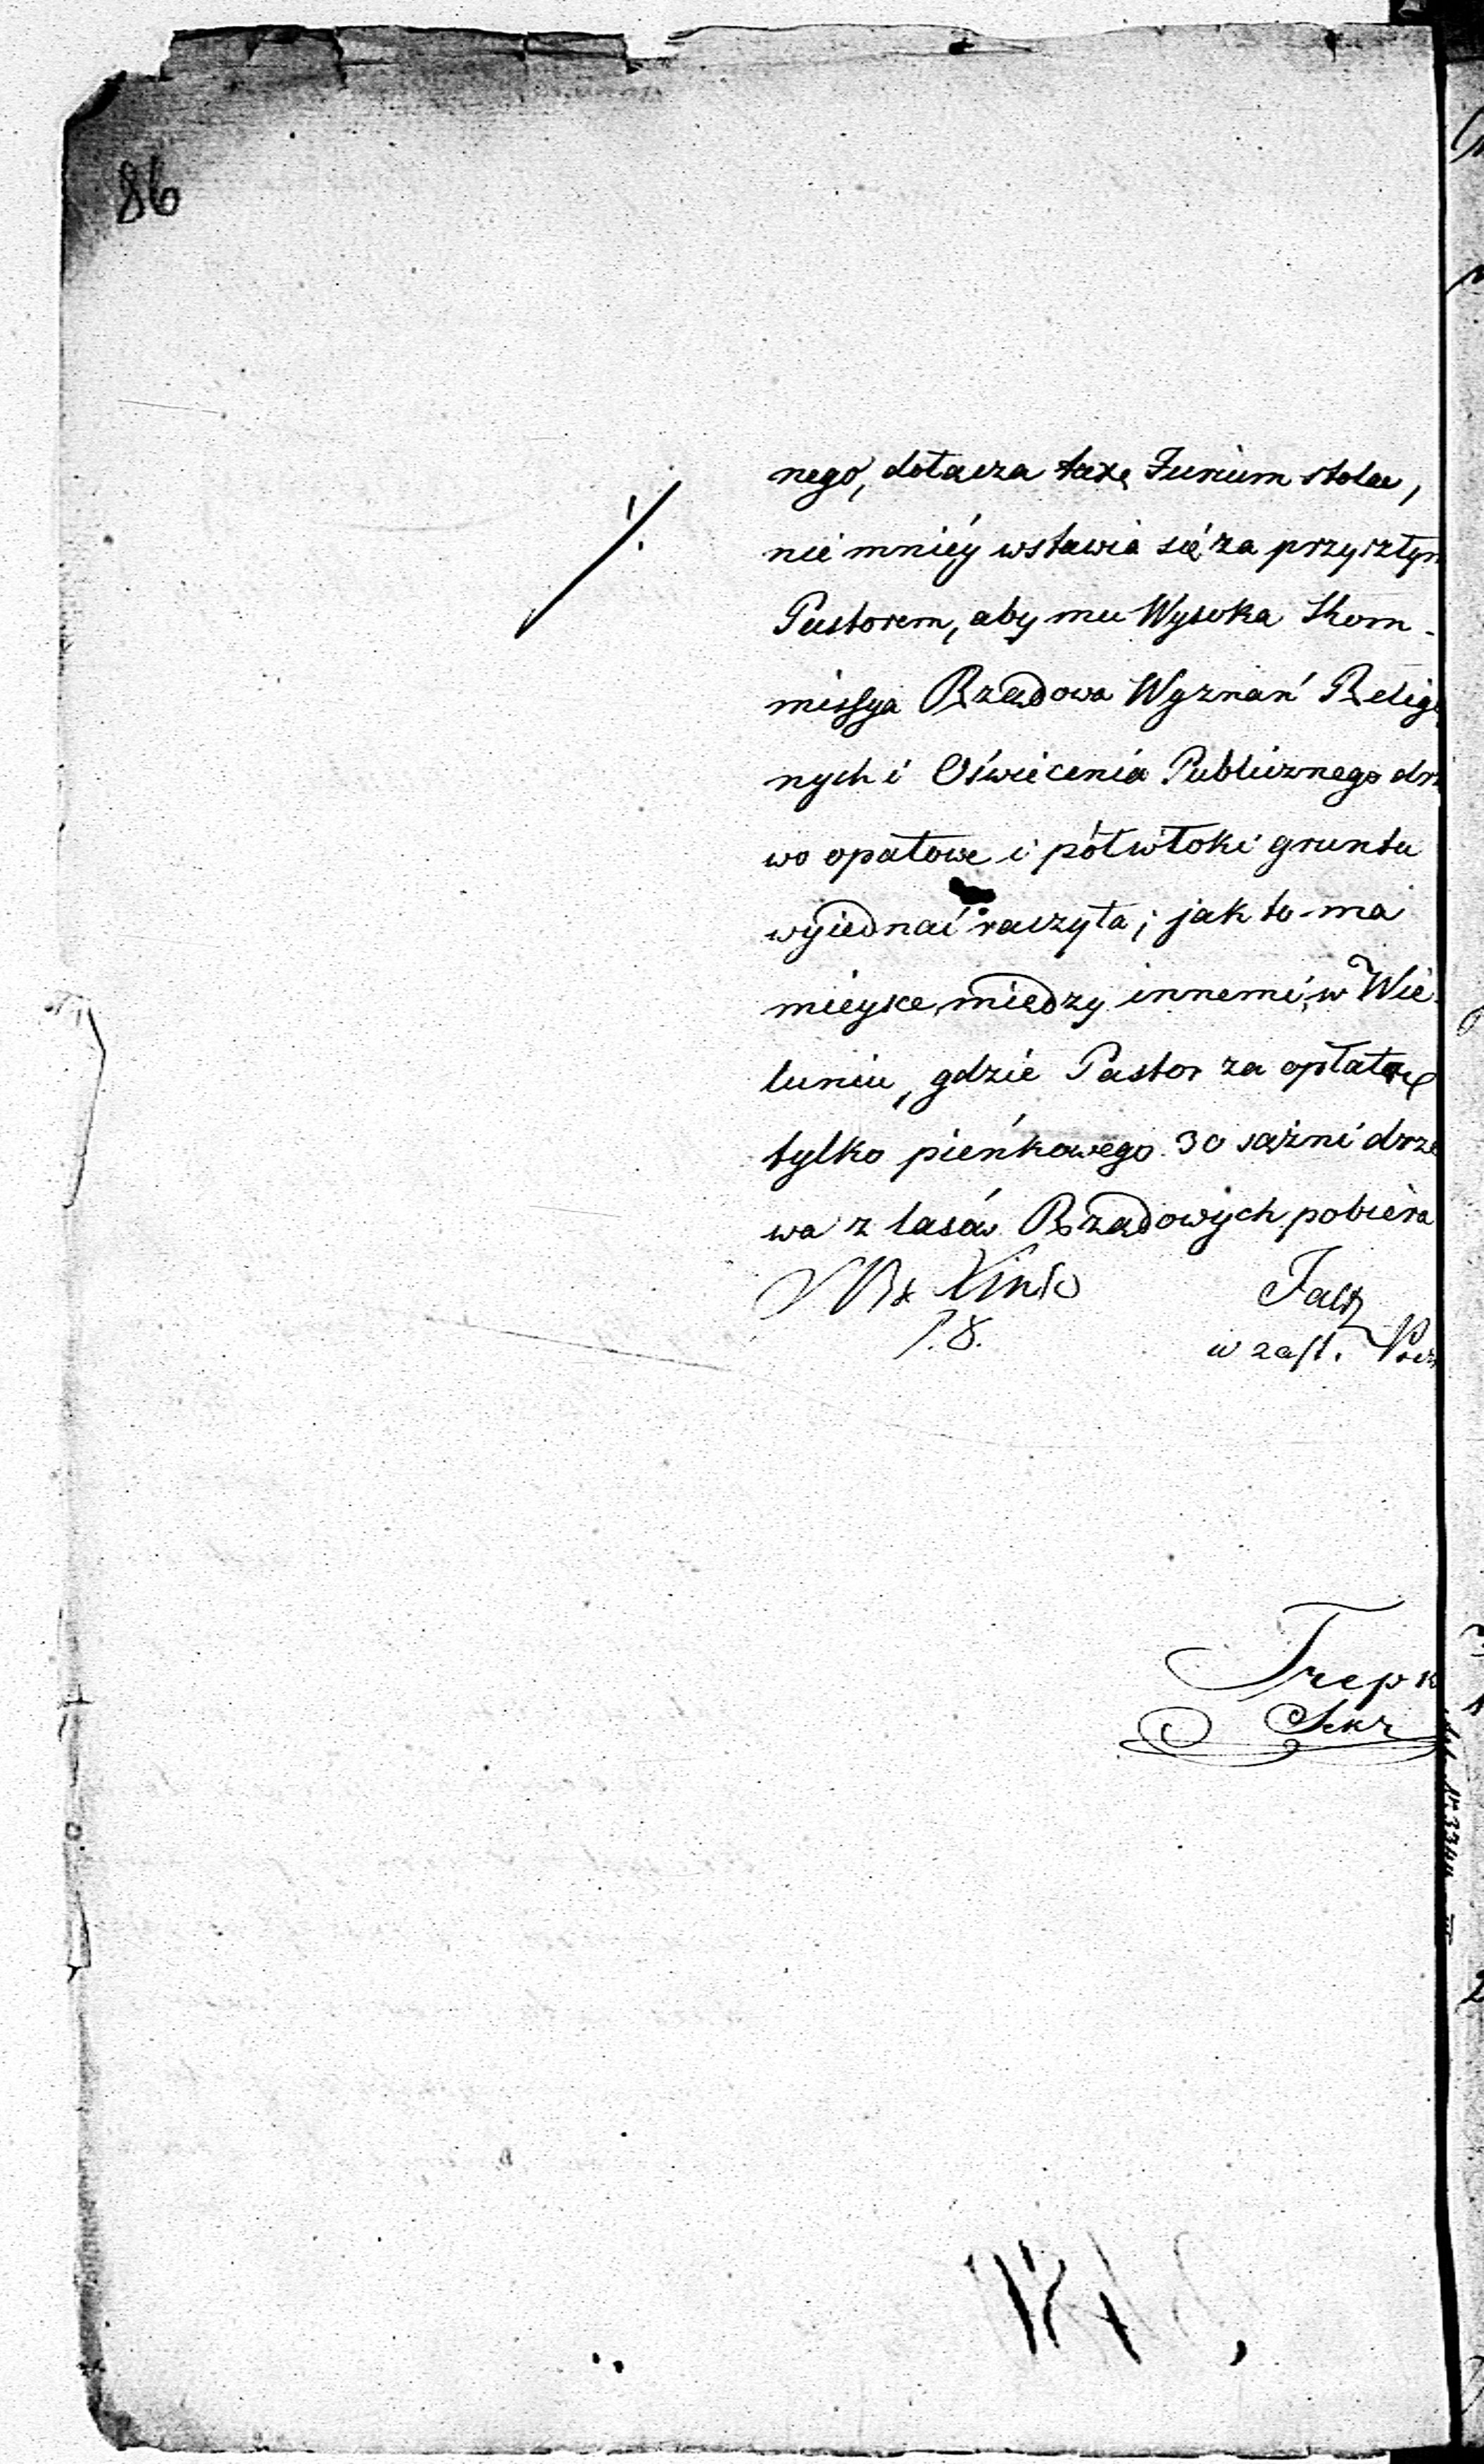 86
nego, dołącza taxę Jurium stolae,
nie mniéy wstawia się za przyszłym
Pastorem, aby mu Wysoka Kom-
missya Rządowa Wyznań Relig
nych i Oświecenia Publicznego drz
wo opałowe i pół włoki gruntu
wyiednać raczyła; jak to ma
mieysce, między innemi, w Wie-
luniu, gdzie Pastor za opłatą
tylko pieńkowego 30 sążni drze
wa z lasów Rządowych pobiera
w zast.
Trepk
Sekr